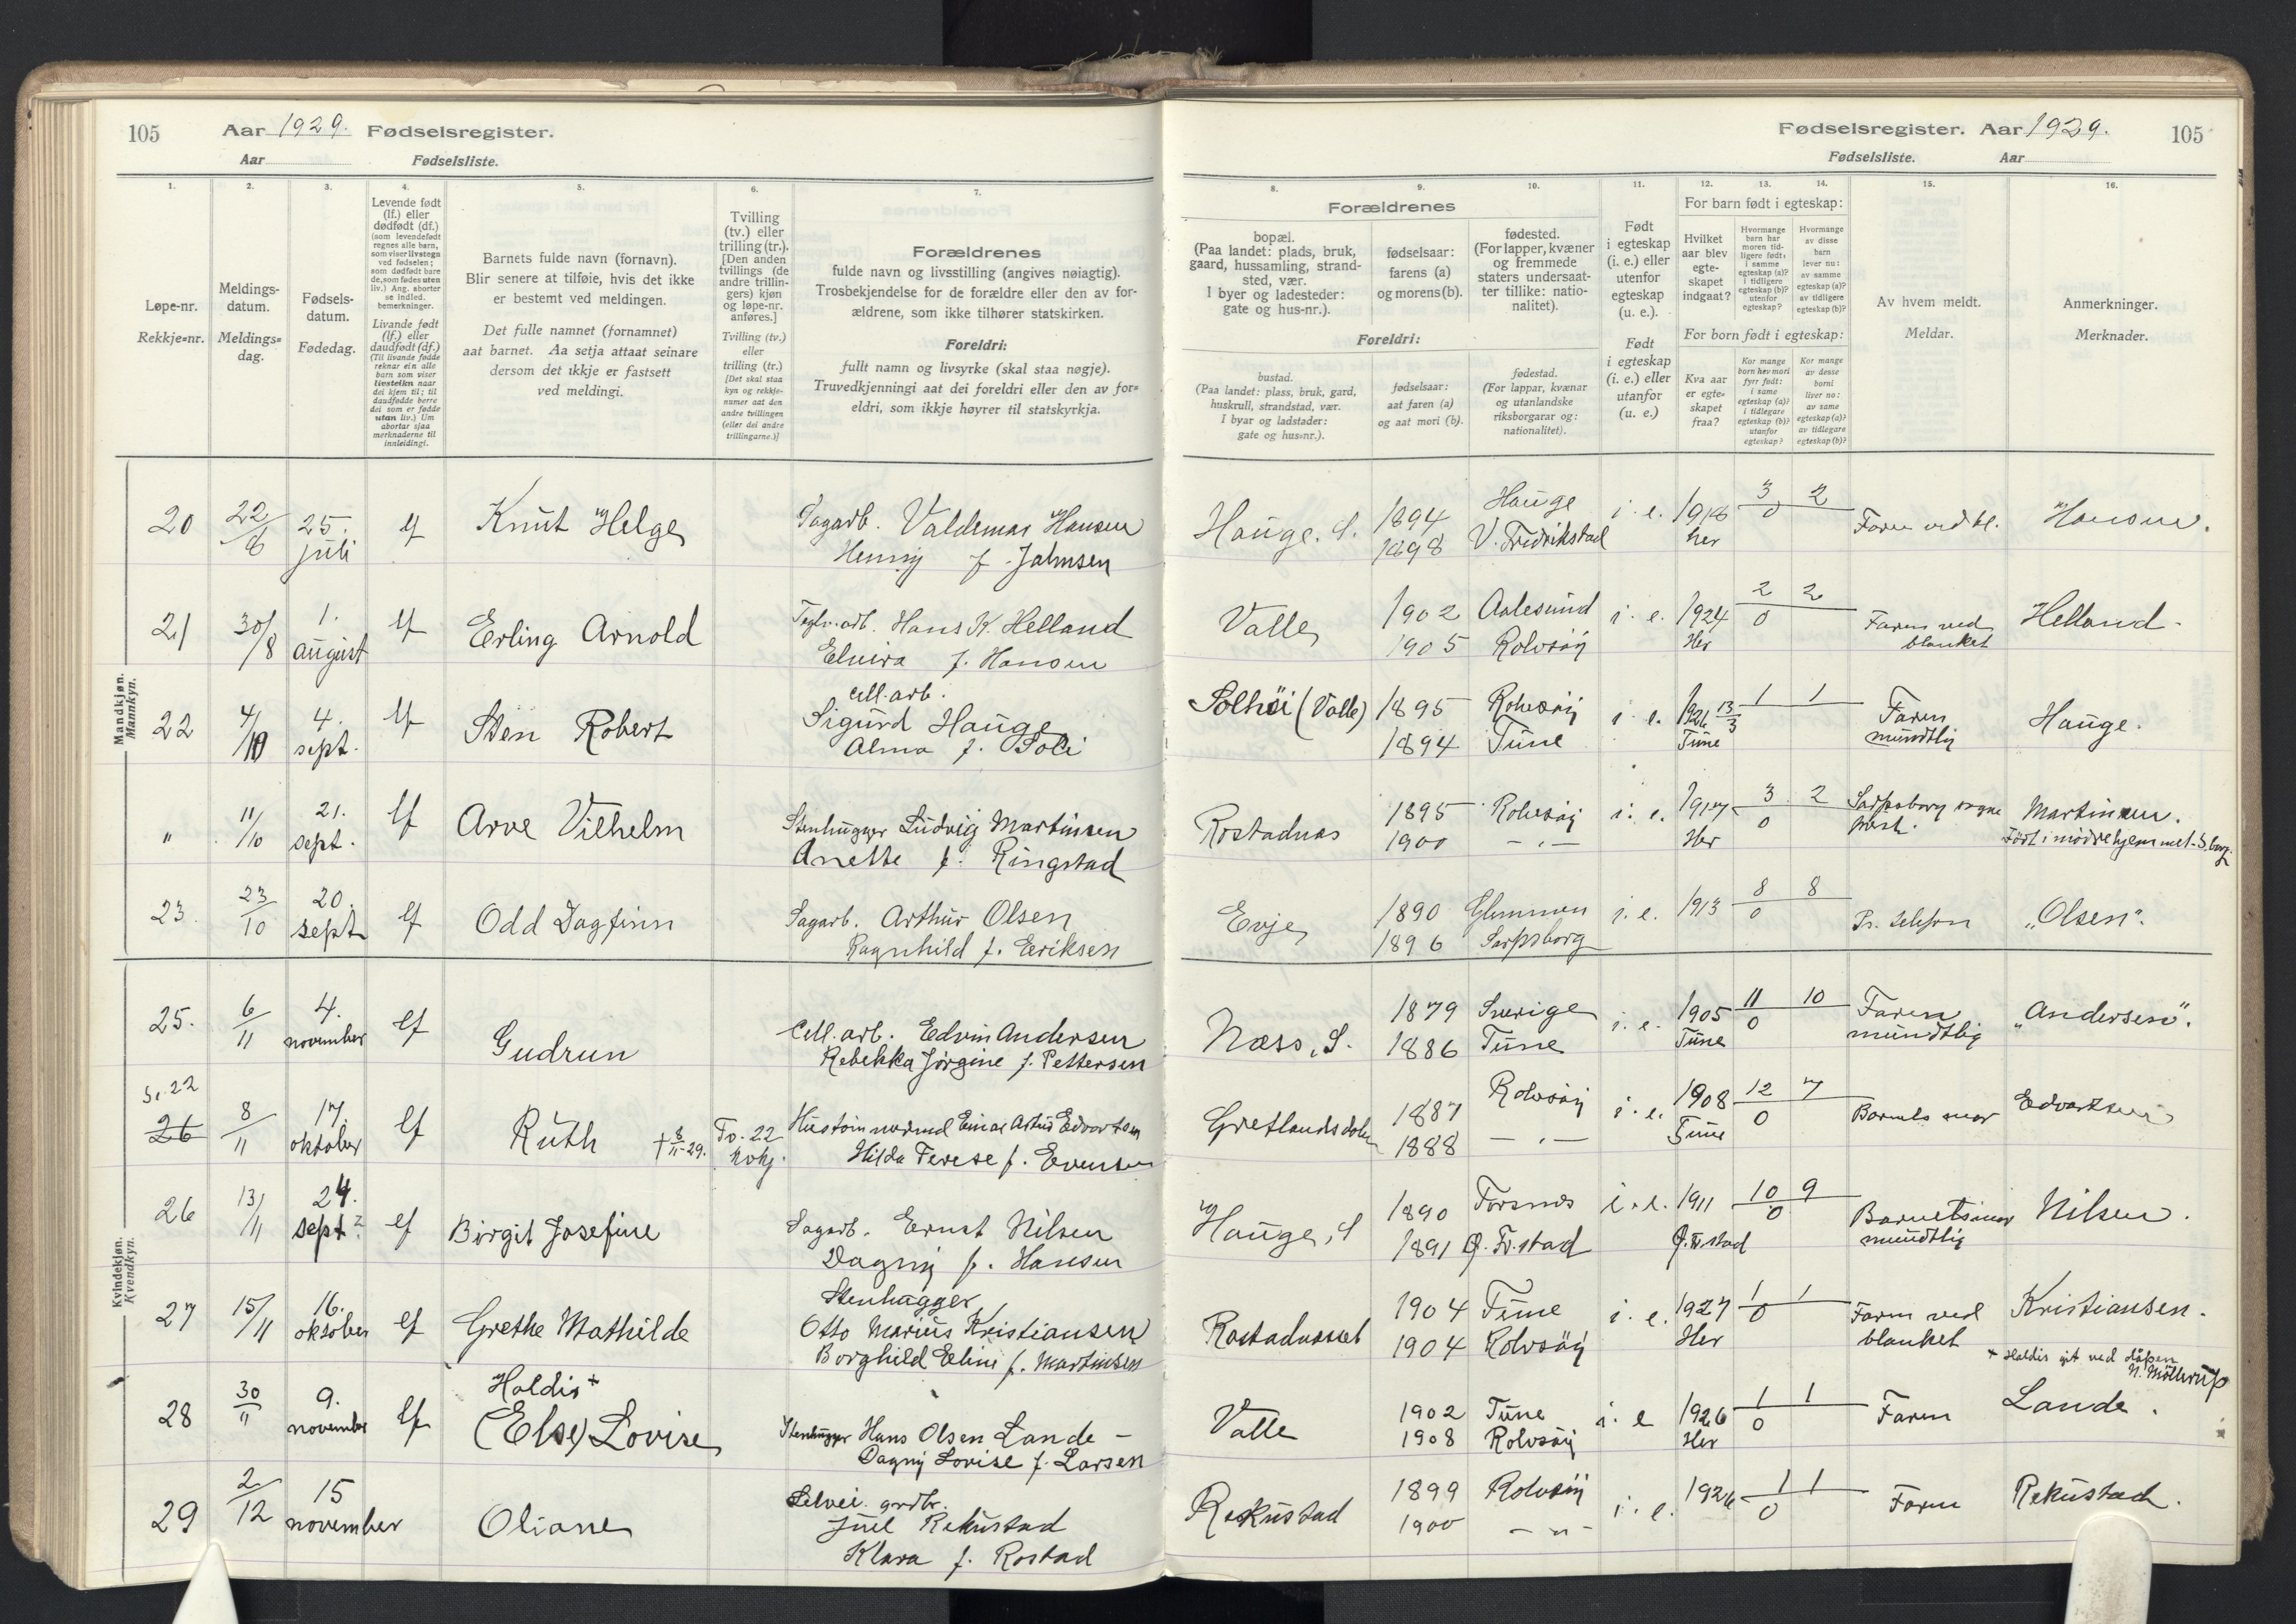 105 Aar 1929. Fødselsregister.
Aar Fødselsliste.
Fødselsregister. Aar 1929. 105
Fødselsliste. Aar
1. 2. 3. 4. 5. 6. 7.
Løpe-nr.
Rekkje=nr.
Meldings-
datum.
Meldings=
dag.
Fødsels-
datum.
Fødedag.
Levende født
(lf.) eller
dødfødt (df.)
(som levendefødt
regnes alle barn,
som viser livstegn
ved fødselen;
som dødfødt bare
de, som fødes uten
liv.) Ang. aborter
se indled.
bemerkninger.
Livande født
(lf.) eller
daudfødt (df.)
(Til livande fødde
reknar ein alle
barn som viser
livsteikn naar
dei kjem til; til
daudfødde berre
dei som er fødde
utan liv.) Um
abortar sjaa
merknaderne til
innleidingi.
Barnets fulde navn (fornavn).
Blir senere at tilføie, hvis det ikke
er bestemt ved meldingen.
Det fulle namnet (fornamnet)
aat barnet. Aa setja attaat seinare
dersom det ikkje er fastsett
ved meldingi.
Tvilling
(tv.) eller
trilling (tr.).
[Den anden
tvillings (de
andre trillin-
gers) kjøn
og løpe-nr.
anføres.]
Tvilling (tv.)
eller
trilling (tr.)
[Det skal staa
kyn og rekkje-
numer aat den
andre tvillingen
(eller dei andre
trillingarne.)]
Forældrenes
fulde navn og livsstilling (angives nøiagtig).
Trosbekjendelse for de forældre eller den av for-
ældrene, som ikke tilhører statskirken.
Foreldri:
fullt namn og livsyrke (skal staa nøgje).
Truvedkjenningi aat dei foreldri eller den av for=
eldri, som ikkje høyrer til statskyrkja.
8. 9. 10. 11. 12. 13. 14. 15. 16.
Forældrenes
bopæl.
(Paa landet: plads, bruk,
gaard, hussamling, strand-
sted, vær.
I byer og ladesteder:
gate og hus-nr.).
fødselsaar:
farens (a)
og morens (b).
fødested.
(For lapper, kvæner
og fremmede
staters undersaat-
ter tillike: natio-
nalitet).
Foreldri:
bustad.
(Paa landet: plass, bruk, gard,
huskrull, strandstad, vær.
I byar og ladstader:
gate og hus=nr.).
fødselsaar:
aat faren (a)
og aat mori (b).
fødestad.
(For lappar, kvænar
og utanlandske
riksborgarar og:
nationalitet).
Født
i egteskap
(i. e.) eller
utenfor
egteskap
(u. e.).
Født
i egteskap
(i. e.) eller
utanfor
(u. e.)
For barn født i egteskap:
Hvilket
aar blev
egte-
skapet
indgaat?
Hvormange
barn har
moren tid-
ligere født:
i samme
egteskap (a)?
i tidligere
egteskap (b)?
utenfor
egteskap?
Hvormange
av disse
barn
lever nu:
av samme
egteskap (a)?
av tidligere
egteskap (b)?
For born født i egteskap:
Kva aar
er egte=
skapet
fraa?
Kor mange
born hev mori
fyrr født:
i same
egteskap (a)?
i tidlegare
egteskap (b)?
utanfor
egteskap?
Kor mange
av desse
borni
liver no:
av same
egteskap (a)?
av tidlegare
egteskap (b)?
Av hvem meldt.
Meldar.
Anmerkninger.
Merknader.
Mandkjøn.
Mannkyn.
20 22/8 25. juli lf Knut Helge Sagarb. Valdemar Hansen
Henny f. Jahnsen
Hauge. S. 1894 Hauge i. e. 1918 3 2 Faren ved bl. Hansen.
1898 V. Fredrikstad her 0
21 30/8 1. august lf Erling Arnold Teglv.arb. Hans K. Helland
Elvira f. Hansen
Valle 1902 Aalesund i. e. 1924 2 2 Faren ved Helland.
1905 Rolvsøy Her 0 blanket
22 4/10 4. sept. lf Sten Robert cell. arb.
Sigurd Hauge
Alma f. Soli
Solhøi (Valle) 1895 Rolvsøy i. e. 1926 13/3 1 1 Faren Hauge.
1894 Tune Tune mundtlig
" 11/10 21. sept. lf Arve Vilhelm Stenhugger Ludvig Martinsen
Anette f. Ringstad
Rostadnes 1895 Rolvsøy i. e. 1917 3 2 Sarpsborg sogne Martinsen.
1900 — " — Her 0 prest. Født i mødrehjemmet - S.borg.
23. 23/10 20. sept. lf Odd Dagfinn Sagarb. Arthur Olsen
Ragnhild f. Eriksen
Evje 1890 Glemmen i. e. 1913 8 8 Pr. telefon „Olsen".
1896 Sarpsborg 0
Kvindekjøn.
Kvendkyn.
25. 6/11 4. november lf Gudrun Cell. arb. Edvin Andersen
Rebekka Jørgine f. Pettersen
Næss, S. 1879 Sverige i. e. 1905 11 10 Faren „Andersen".
1886 Tune Tune 0 mundtlig
26 8/11 17. oktober lf Ruth † 8/11-29. Tv. 22 Hustømmermand Einar Artur Edvartsen
Hilda Terese f. Evensen
1887 Rolvsøy i. e. 1908 12 7 Barnets mor Edvartsen
1888 — " — Tune 0
26 13/11 24. sept. lf Birgit Josefine Sagarb. Ernst Nilsen
Dagny f. Hansen
Hauge, S 1890 Torsnes i. e. 1911 10 9 Barnets mor Nilsen.
1891 Ø. Fr.stad Ø. Fr.stad 0 mundtlig
27 15/11 16. oktober lf Grethe Mathilde Stenhugger
Otto Marius Kristiansen
Borghild Elini f. Martinsen
Rostadnesset 1904 Tune i. e. 1927 1 1 Faren ved Kristiansen.
1904 Rolvsøy Her 0 blanket
+ Haldis git ved dåpen
N. Møllerup
28 30/11 9. november lf Haldis +
(Else) Lovise Stenhugger Hans Olsen Lande -
Dagny Lovise f. Larsen
Valle 1902 Tune i. e 1926 1 1 Faren Lande.
1908 Rolvsøy Her 0
29 2/12 15 november Oliane Selvei. grdbr.
Juel Rekustad
Klara f. Rostad
Rekustad 1899 Rolvsøy i. e. 1926 1 1 Faren Rekustad.
1900 — " — 0